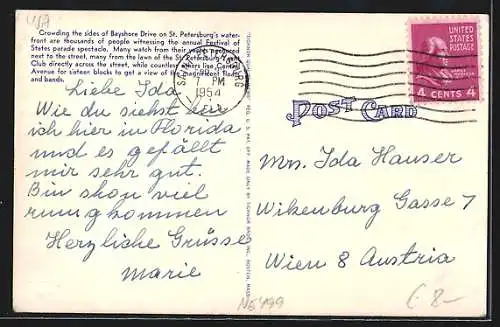 U/A
Crowding the sides of Bayshore Drive on St. Petersburg's water-
front are thousands of people witnessing the annual Festival of
States parade spectacle. Many watch from their yachts
next to the street, many from the lawn of the St. Petersburg
Club directly across the street, while countless others line Central
Avenue for sixteen blocks to get a view of the magnificent floats
and bands.
SAINT PETERSBURG
7 PM
1954
FLA.
UNITED
STATES
POSTAGE
4 CENTS 4
POST CARD
Liebe Ida
Wie du siehst bin
ich hier in Florida
und es gefällt
mir sehr gut.
Bin shon viel
rumgkommen
Herzliche Grüsse
Marie
Mrs. Ida Hauser
Wikenburg Gasse 7
Wien 8 Austria
N6499
€ 8-